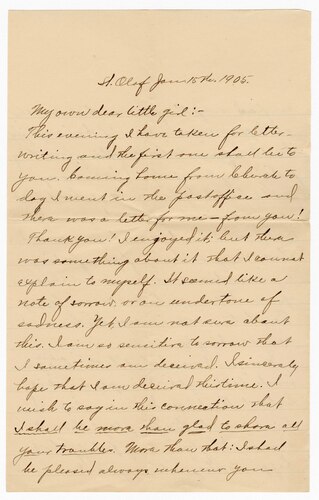 St. Olaf Jan 15th. 1905.
My own dear little girl:-
This evening I have taken for letter-
writing and the first one shall be to
you. Coming home from to
day I went in the postoffice and
there was a letter for me – from you!
Thank you! I enjoyed it; but there
was something about it that I cannot
explain to myself. It seemed like a
note of sorrow, or an undertone of
sadness. Yet I am not sure about
this. I am so sensitive to sorrow that
I sometimes am deceived. I sincerely
hope that I am deceived this time. I
wish to say in this connection that
I shall be more than glad to share all
your troubles. More than that: I shall
be pleased always whenever you